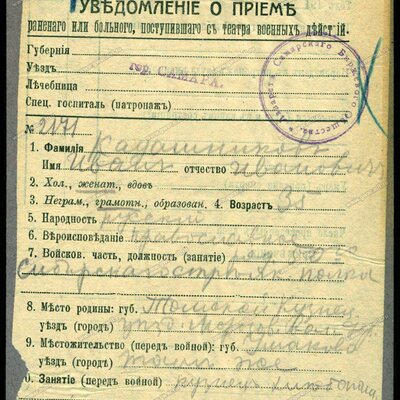 УВѢДОМЛЕНІЕ О ПРІЕМѢ
раненаго или больного, поступившаго съ театра военныхъ дѣйствій.
Губернія
Уѣздъ гор. САМАРА.
Лѣчебница
Спец. госпиталь (патронажъ)
Лазаретъ Самарскаго Биржевого Общества
№ 2171
1. Фамилія Кадашниковъ
Имя Иванъ отчество Ивановичъ
2. Хол., женат., вдовъ
3. Неграм., грамотн., образован. 4. Возрастъ 35
5. Народность русскій
6. Вѣроисповѣданіе православное
7. Войсков. часть, должность (занятіе)
Сибирскаго стрѣлк полка
8. Мѣсто родины: губ. Томской Кузнец.
уѣздъ (городъ)
9. Мѣстожительство (передъ войной): губ.
уѣздъ (городъ)
0. Занятіе (передъ войной)